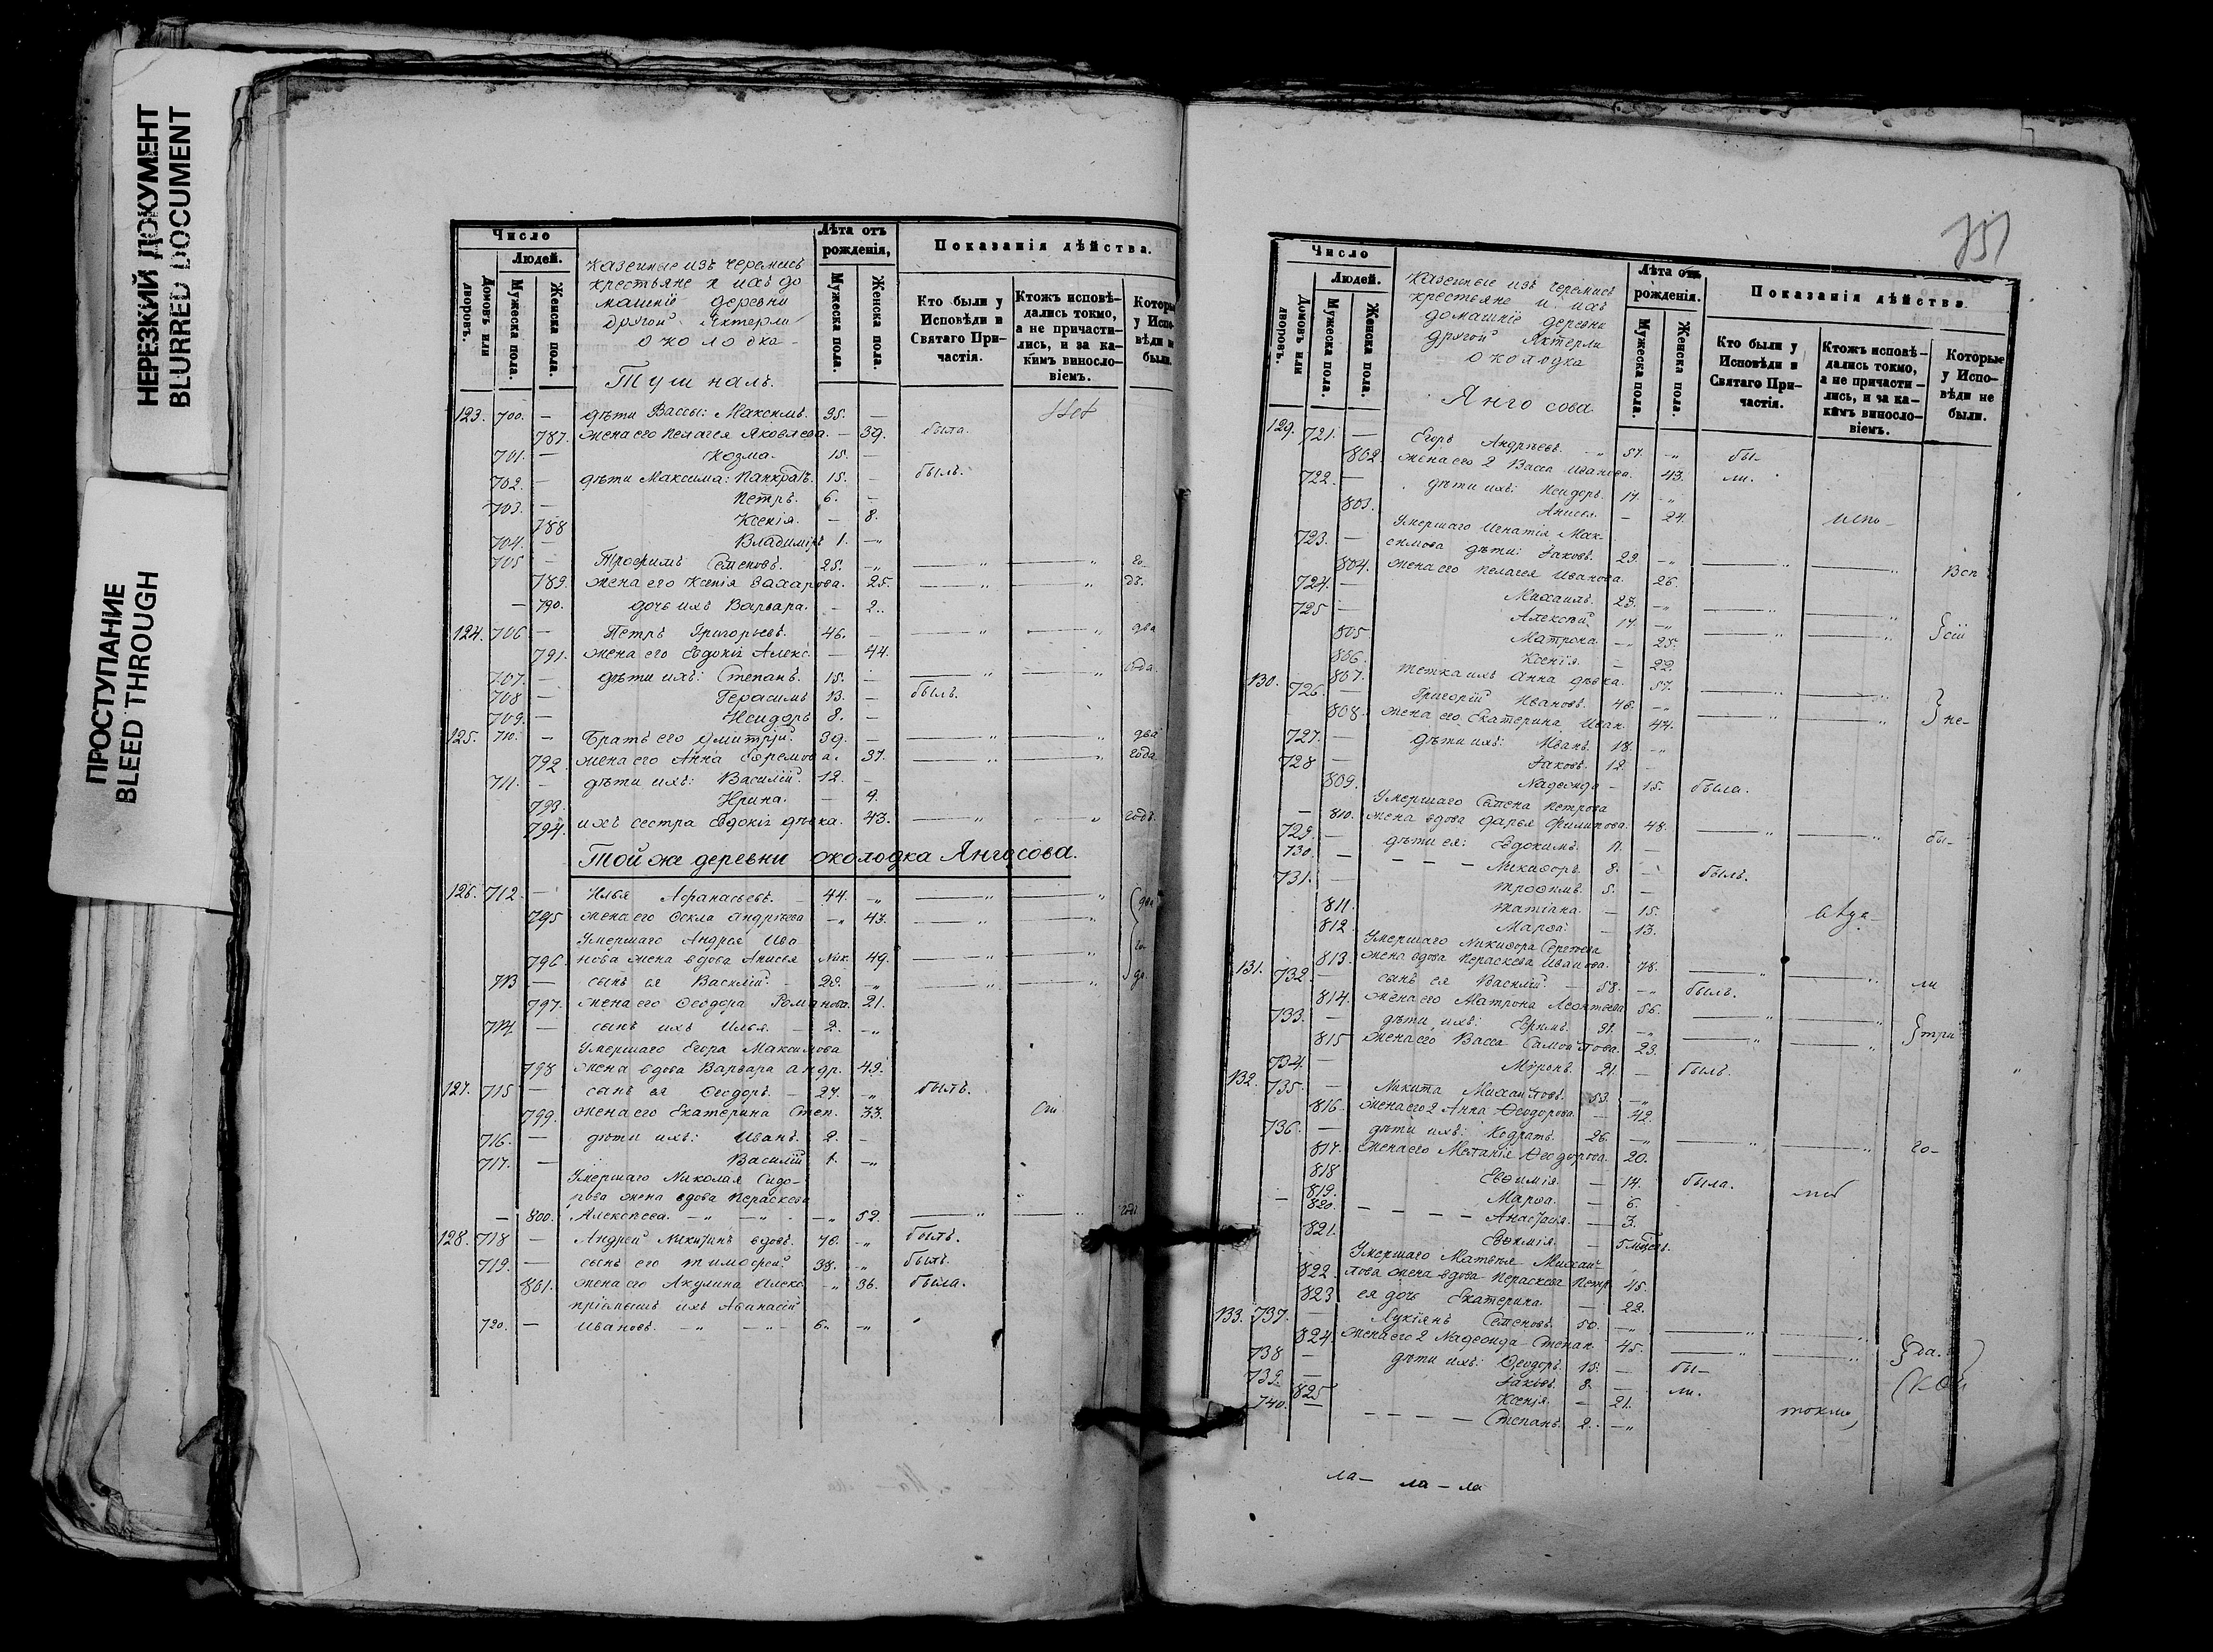 НЕРЕЗКИЙ ДОКУМЕНТ
BLURRED DOCUMENT
ПРОСТУПАНИЕ
BLEED THROUGH
Число
Людей.
Домовъ или дворовъ.
Мужеска пола.
Женска пола.
казенные изъ черемисъ
крестьяне и ихъ до
машніе деревни
другой Яктерли
околодка
Тушналъ.
Лѣта отъ рожденія,
Мужеска пола.
Женска пола.
Показанія дѣйства.
Кто были у Исповѣди и Святаго Причастія.
Ктожъ исповѣдались токмо, а не причастились, и за какимъ винословіемъ.
Которы у Испо- вѣди не были.
123. 700. — дѣти Вассы: Максимъ. 35. —
787. жена его Пелагея Яковлева. — 39. была.
701. — Козма. 15. —
702. — дѣти Максима: Панкратъ. 15. — былъ.
703. — Петръ. 6. —
788 Ксенія. — 8.
704. — Владиміръ 1. — „
705 — Трофимъ Семеновъ. 25. — „ го-
789. жена его Ксенія Захарова. 25. — „ — „ дъ.
— 790. дочь ихъ Варвара. — 2.
124. 706 — Петръ Григорьевъ. 46. — — „ — „ два
791. жена его Евдокія Алекс. — 44.
707. — дѣти ихъ: Степанъ. 15. — — „ — „ года.
708 — Герасимъ 13. — былъ.
709. — Исидоръ 8. —
125. 710. — Братъ его Дмитрій. 39. — — „ — „ два
792. жена его Анна Ефремова. 37. — „ — „ года
711. — дѣти ихъ: Василій. 12. —
793. Ирина. — 9.
794. ихъ сестра Евдокія дѣвка. 43. — „ — „ годъ.
Той же деревни околодка Янгосова.
126. 712. — Илья Афанасьевъ. — 44. — „ — „ — „
795 жена его Фекла Андрѣева — „ 43. — „ — „
Умершаго Андрея Ива-
796. нова жена вдова Анисья Ник. 49. — „ — „ го-
713 — сынъ ея Василій. — 29. — „ — „ — „ да.
797. жена его Феодора Романова. 21.
714. — сынъ ихъ Илья. — 2. — „
Умершаго Егора Максимова
798 жена вдова Варвара Андр. 49.
127. 715 — сынъ ея Феодоръ. — 27. — „ былъ.
799. жена его Екатерина Степ. 33.
716. — дѣти ихъ: Иванъ. 2. —
717. — Василій 1. — „
Умершаго Николая Сидо-
рова жена вдова Пераскева
— 800. Алексѣева. — „ — „ — — „ 52. — „ — „ годъ
128. 718 — Андрей Никитинъ вдовъ. 70. — „ былъ.
719. — сынъ его Тимофей 38. — „ былъ.
801. жена его Акулина Алекс. — „ 36. была.
пріемышъ ихъ Афанасій
720. — Ивановъ. — „ — „ 6. — „
751
Число
Людей.
Домовъ или дворовъ.
Мужеска пола.
Женска пола.
Казенные изъ черемисъ
крестьяне и ихъ
домашніе деревни
другой Яктерли
околодка
Янгосова.
Лѣта отъ рожденія.
Мужеска пола.
Женска пола.
Показанія дѣйства.
Кто были у Исповѣди и Святаго Причастія.
Ктожъ исповѣдались токмо, а не причастились, и за какимъ винословіемъ.
Которые у Исповѣди не были.
129. 721. — Егоръ Андрѣевъ. — „ 57. — „ бы-
802. жена его 2 Васса Иванова. 43. ли.
722. — дѣти ихъ: Исидоръ. 17. — „
803. Анисья. — 24. испо-
Умершаго Игнатія Мак-
723. — симова дѣти: Іаковъ. 29. — „
804. жена его Пелагея Иванова. 26. — „ — „ Всп
724. — Михаилъ. 23. — „
725 — Алексѣй 17. — „ — „ — „
805. Матрона. — „ 25. — „ — „ сіи
806. Ксенія. — 22.
807. тетка ихъ Анна дѣвка. 57.
130. 726. — Григорій Ивановъ. 48. — „ — „ — „
808. жена его Екатерина Иван. 44. — „ — „ не-
727. — дѣти ихъ: Иванъ. 18. — „
728 — Іаковъ. 12. —
809. Надежда — 15. была.
Умершаго Семена Петрова
— 810. жена вдова Дарья Филипова. 48. — „ — „ бы-
729. — дѣти ея: Евдокимъ. 11. —
730. — Никифоръ. 8. — былъ.
731. — Трофимъ. 5. —
811. Татіана. — 15.
812. Марѳа. — 13.
Умершаго Никифора Сергеева
813. жена вдова Пераскева Иванова. 78. — „ — „ ли
131. 732. — сынъ ея Василій. — 58. — „ былъ.
814. жена его Матрона Леонтьева 56. — „ — „
733. — дѣти ихъ: Ефимъ. 31. — „ три
815 жена его Васса Самойлова. 23. — „ — „
734. — Миронъ. 21. — былъ.
132. 735. — Никита Михайловъ. 53. — „
816. жена его 2 Анна Ѳеодорова. — 42.
736. — дѣти ихъ: Кодратъ. 26. — „ — „ — „ го-
817. жена его Меланія Ѳеодорова. 20.
818 Евфимія. — 14. была.
819. Марѳа. — 6.
— 820. Анастасія. — 3.
821. Евфимія. — 5 мѣсец.
Умершаго Матвѣя Михай-
822. лова жена вдова Пераскева Петр. 45.
823 ея дочь Екатерина. — 22.
133. 737. — Лукіянъ Семеновъ. 50. — „ — „ — „
824. жена его 2 Надежда Степан. 45. — „ — „ да.
738 — дѣти ихъ: Ѳеодоръ. 15. — бы-
739. — Іаковъ. 8. — ли.
825 Ксенія. — 21.
740. — Степанъ. 2. — „ токмо
ла — ла — ла